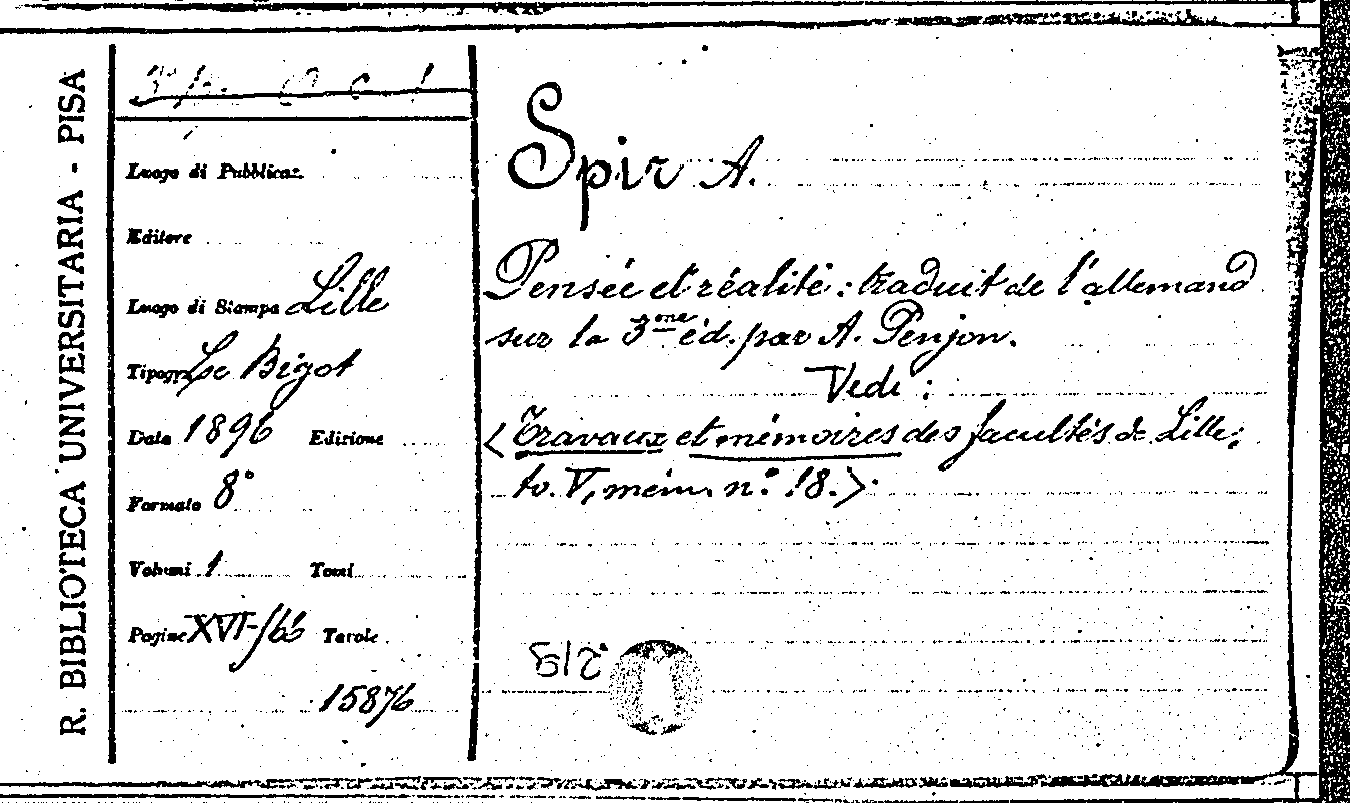 R. BIBLIOTECA UNIVERSITARIA - PISA
Luogo di Pubblicaz.
Editore
Luogo di Stampa Lille
Tipogr. Le Bigot
Data 1896 Edizione
Formato 8°
Volumi 1 Tomi
Pagine XVI- Tavole
15876
Spir A.
Pensée et réalité : traduit de l'allemand
sur la 3ème éd. par A. Penjon.
Vedi :
<Travaux et mémoires des facultés de Lille;
to. V, mém. n.° 18.>.